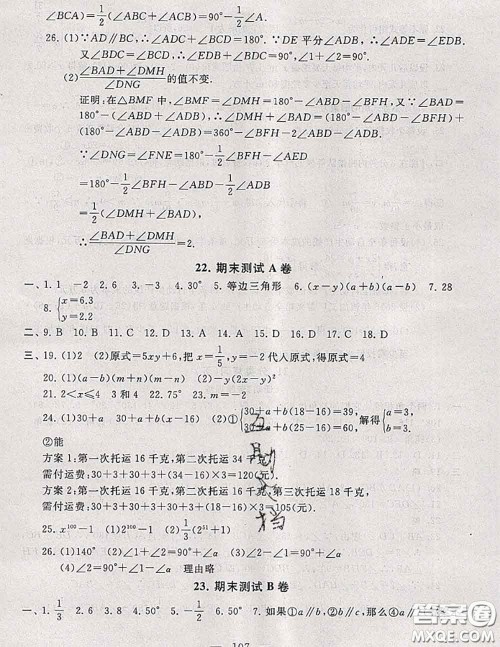 ∠BCA)=1/2(∠ABC+∠ACB)=90°-1/2∠A.
26. (1)∵AD∥BC,∴∠ADC+∠BDC=180°. ∵DE平分∠ADB,∴∠ADE=∠EDB.
又∠BDC=∠BCD,∴∠EDB+∠BDC=90°,∠1+∠2=90°.
(2) (∠BAD+∠DMH)/∠DNG的值不变.
证明:在△BMF中,∠BMF=∠DMH=180°-∠ABD-∠BFH,又∵∠BAD=
180°-(∠ABD+∠ADB),∴∠DMH+∠BAD=(180°-∠ABD-∠BFH)+
(180°-∠ABD-∠ADB)=360°-∠BFH-2∠ABD-∠ADB.
∵∠DNG=∠FNE=180°-∠BFH-∠AED
=180°-1/2∠BFH-∠ABD-1/2∠ADB
=1/2(∠DMH+∠BAD),
∴(∠BAD+∠DMH)/∠DNG=2.
22. 期末测试 A 卷
一、1. 1 -2 2. 6 3. -3 4. 30° 5. 等边三角形 6. (x-y)(a+b)(a-b) 7. 28
8. {x=6.3 y=2.2
二、9. B 10. D 11. C 12. A 13. B 14. C 15. A 16. C 17. C 18. D
三、19. (1)2 (2)原式=5xy+6,把x=1/5,y=-2代人原式,得原式=4
20. (1)(a-b)(m+n)(m-n) (2)-(2x-y)²
21. 2<x≤4 3和4 22. 75° 23. 略
24. (1)30+a 30+a (x-16) (2)①{30+a+b(18-16)=39, 30+a+b(25-16)=60, 解得{a=3, b=3.
②能
方案1:第一次托运16千克,第二次托运34千克
需付运费:30+3+30+3+(34-16)×3=120(元).
方案2:第一次托运16千克,第二次托运16千克,第三次托运18千克
需付运费:30+3+30+3+30+3+(18-16)×3=105(元).
25. x¹⁰⁰-1 (1)2¹⁰⁰-1 (2)1/3(2⁵¹+1)
26. (1)140° (2)∠1+∠2=90°+∠α (3)∠2-∠1=90°+∠α
(4)∠2=90°+∠1-∠α 理由略
23. 期末测试 B 卷
一、1. 1/3 2. 6 3. 8 4. 50° 5. -1/2 6. 50° 7. 如果①a∥b,②b∥c,那么④a∥
— 107 —
答案圈
MXQE.COM